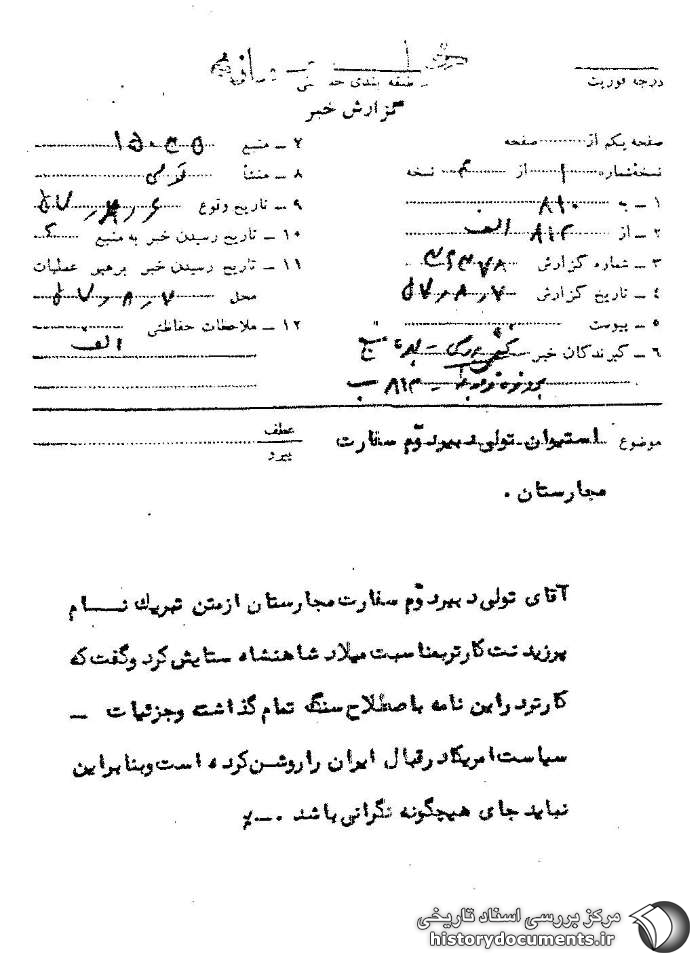 طبقه بندی
درجه فوریت
گزارش خبر
صفحه یکم از صفحه
نسخه شماره ۱ از نسخه
۱ – به ۸۱۰
۲ – از ۸۱۲ الف
۳ – شماره گزارش
۴ – تاریخ گزارش ۷ر۸ر۵۷
۵ – پیوست
۶ – گیرندگان خبر
۷ – منبع
۸ – منشأ
۹ – تاریخ وقوع
۱۰ – تاریخ رسیدن خبر به منبع
۱۱ – تاریخ رسیدن خبر برهبر عملیات
محل ۷ر۸ر۵۷
۱۲ – ملاحظات حفاظتی
الف
موضوع استیوان تولی دبیر دوّم سفارت
مجارستان .
عطف
پیرو
آقای تولی دبیر دوّم سفارت مجارستان از متن تبریك نــام
پرزیدنت کارتر بمناسبت میلاد شاهنشاه ستایش کرد و گفت که
کارتر در این نامه باصطلاح سنگ تمام گذاشته و جزئیات –
سیاست امریکا در قبال ایران را روشن کرده است و بنابراین
نباید جای هیچگونه نگرانی باشد .
مرکز بررسی اسناد تاریخی
historydocuments.ir